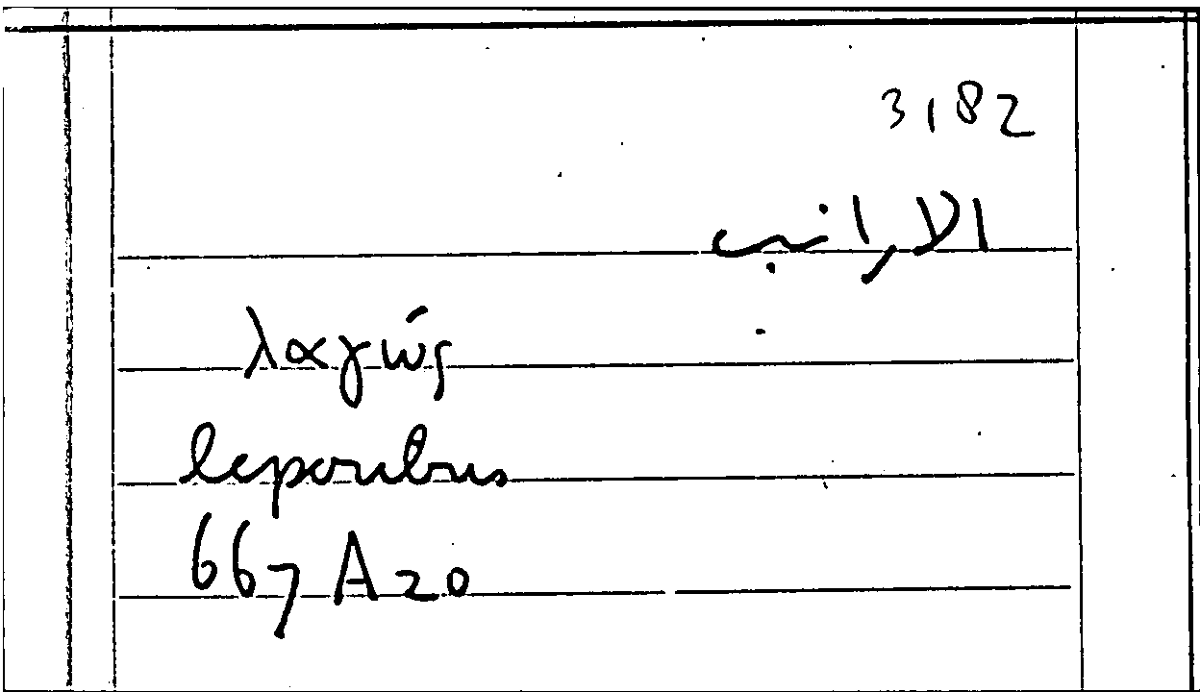 3182
الارانب
λαγώς
leporibus
667 A 20